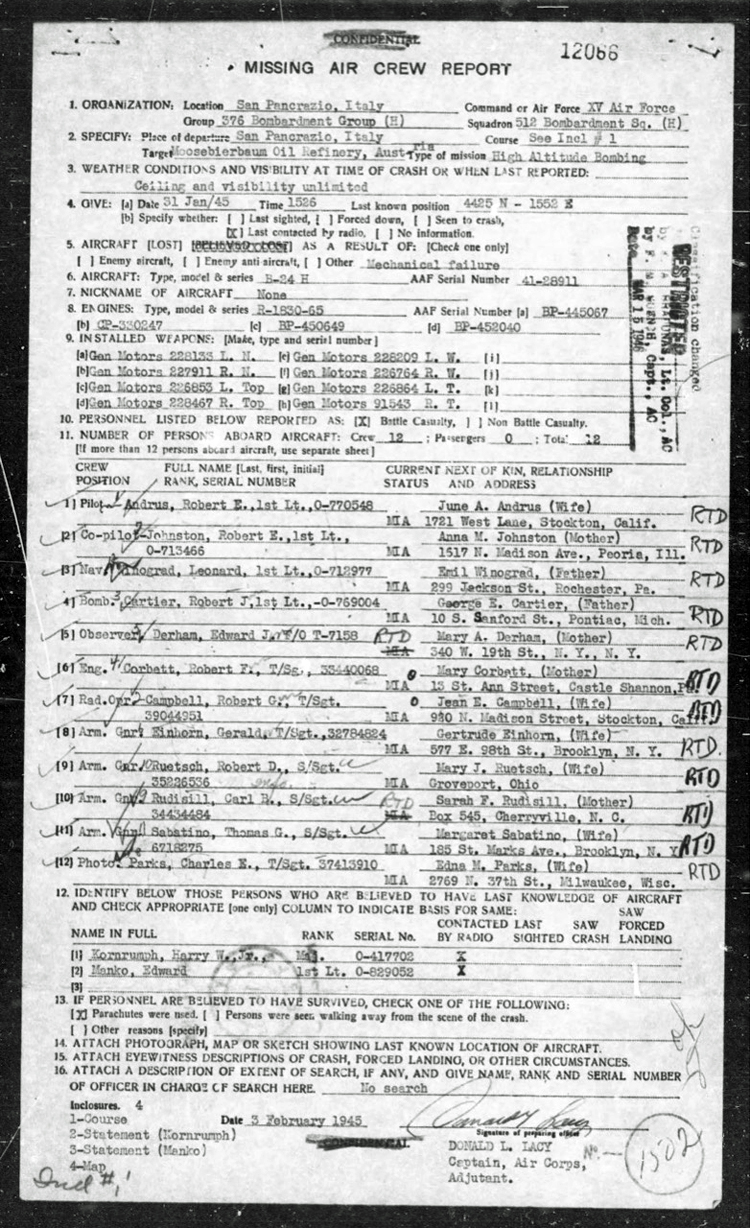 CONFIDENTIAL
12066
MISSING AIR CREW REPORT
1. ORGANIZATION: Location San Pancrazio, Italy Command or Air Force XV Air Force
Group 376 Bombardment Group (H) Squadron 512 Bombardment Sq. (H)
2. SPECIFY: Place of departure San Pancrazio, Italy Course See Incl # 1
Target Moosebierbaum Oil Refinery, Austria Type of mission High Altitude Bombing
3. WEATHER CONDITIONS AND VISIBILITY AT TIME OF CRASH OR WHEN LAST REPORTED:
Ceiling and visibility unlimited
4. GIVE: [a] Date 31 Jan/45 Time 1526 Last known position 4425 N - 1552 E
[b] Specify whether: [ ] Last sighted, [ ] Forced down, [ ] Seen to crash,
[X] Last contacted by radio, [ ] No information.
5. AIRCRAFT [LOST] [BELIEVED LOST] AS A RESULT OF: [Check one only]
[ ] Enemy aircraft, [ ] Enemy anti aircraft, [ ] Other Mechanical failure
6. AIRCRAFT: Type, model & series B-24 H AAF Serial Number 41-28911
7. NICKNAME OF AIRCRAFT None
8. ENGINES: Type, model & series R-1830-65 AAF Serial Number [a] BP-445067
[b] CP-330247 [c] BP-450649 [d] BP-452040
9. INSTALLED WEAPONS: [Make, type and serial number]
[a] Gen Motors 228133 L. N. [e] Gen Motors 228209 L. W. [i]
[b] Gen Motors 227911 R. N. [f] Gen Motors 226764 R. W. [j]
[c] Gen Motors 226853 L. Top [g] Gen Motors 226864 L. T. [k]
[d] Gen Motors 228467 R. Top [h] Gen Motors 91543 R. T. [l]
10. PERSONNEL LISTED BELOW REPORTED AS: [X] Battle Casualty, [ ] Non Battle Casualty.
11. NUMBER OF PERSONS ABOARD AIRCRAFT: Crew 12 ; Passengers 0 ; Total 12
[If more than 12 persons aboard aircraft, use separate sheet]
Classification changed
RESTRICTED
Lt. Col., AC
Capt., AC
Date MAR 15 1946
CREW FULL NAME [Last, first, initial] CURRENT NEXT OF KIN, RELATIONSHIP
POSITION RANK, SERIAL NUMBER STATUS AND ADDRESS
[1] Pilot Andrus, Robert E., 1st Lt., O-770548 June A. Andrus (Wife)
MIA 1721 West Lane, Stockton, Calif. RTD
[2] Co-pilot Johnston, Robert E., 1st Lt., Anna M. Johnston (Mother)
O-713466 MIA 1517 N. Madison Ave., Peoria, Ill. RTD
[3] Nav. Winograd, Leonard, 1st Lt., O-712977 Emil Winograd, (Father)
MIA 299 Jackson St., Rochester, Pa. RTD
[4] Bomb. Cartier, Robert J, 1st Lt., -O-769004 George E. Cartier, (Father)
MIA 10 S. Sanford St., Pontiac, Mich. RTD
[5] Observer Derham, Edward J. F/O T-7158 RTD Mary A. Derham, (Mother)
MIA 340 W. 19th St., N. Y., N. Y. RTD
[6] Eng. Corbett, Robert F., T/Sg., 33440068 Mary Corbett, (Mother)
MIA 13 St. Ann Street, Castle Shannon, Pa. RTD
[7] Rad. Opr. Campbell, Robert G., T/Sgt. Jean E. Campbell, (Wife)
39044951 MIA 980 N. Madison Street, Stockton, Calif. RTD
[8] Arm. Gnr. Einhorn, Gerald, T/Sgt., 32784824 Gertrude Einhorn, (Wife)
MIA 577 E. 98th St., Brooklyn, N. Y. RTD.
[9] Arm. Gnr. Ruetsch, Robert D., S/Sgt. Mary J. Ruetsch, (Wife)
35226536 MIA Groveport, Ohio RTD
[10] Arm. Gnr. Rudisill, Carl B., S/Sgt. RTD Sarah F. Rudisill, (Mother)
34434484 MIA Box 545, Cherryville, N. C. RTD
[11] Arm. Gnr. Sabatino, Thomas G., S/Sgt. Margaret Sabatino, (Wife)
6718275 MIA 185 St. Marks Ave., Brooklyn, N. Y. RTD
[12] Photo. Parks, Charles E., T/Sgt. 37413910 Edna M. Parks, (Wife)
MIA 2769 N. 37th St., Milwaukee, Wisc. RTD
12. IDENTIFY BELOW THOSE PERSONS WHO ARE BELIEVED TO HAVE LAST KNOWLEDGE OF AIRCRAFT
AND CHECK APPROPRIATE [one only] COLUMN TO INDICATE BASIS FOR SAME:
SAW
CONTACTED LAST SAW FORCED
NAME IN FULL RANK SERIAL No. BY RADIO SIGHTED CRASH LANDING
[1] Kornrumph, Harry W., Jr., Maj. O-417702 X
[2] Manko, Edward 1st Lt. O-829052 X
[3]
13. IF PERSONNEL ARE BELIEVED TO HAVE SURVIVED, CHECK ONE OF THE FOLLOWING:
[X] Parachutes were used. [ ] Persons were seen walking away from the scene of the crash.
[ ] Other reasons [specify]
14. ATTACH PHOTOGRAPH, MAP OR SKETCH SHOWING LAST KNOWN LOCATION OF AIRCRAFT.
15. ATTACH EYEWITNESS DESCRIPTIONS OF CRASH, FORCED LANDING, OR OTHER CIRCUMSTANCES.
16. ATTACH A DESCRIPTION OF EXTENT OF SEARCH, IF ANY, AND GIVE NAME, RANK AND SERIAL NUMBER
OF OFFICER IN CHARGE OF SEARCH HERE. No search
Inclosures. 4
1-Course Date 3 February 1945
2-Statement (Kornrumph) CONFIDENTIAL Signature of preparing officer
3-Statement (Manko) DONALD L. LACY
4-Map Captain, Air Corps,
Adjutant.
No. 1502
Incl #1